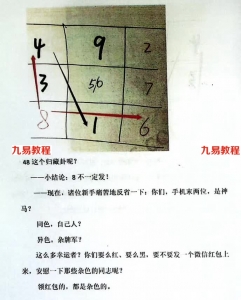 4 9 2
3 5/6 7
8 1 6
九易教程 九易教程
48 这个归藏卦呢？
——小结论：8 不一定发！
——现在，诸位新手痛苦地反省一下：你们，手机末两位，是神
马？
同色，自己人？
异色，杂牌军？
这么多幸运者？你们要么红、要么黑，要不要发一个微信红包上
来，安慰一下那些杂色的同志呢？
领红包的，都是杂色的。